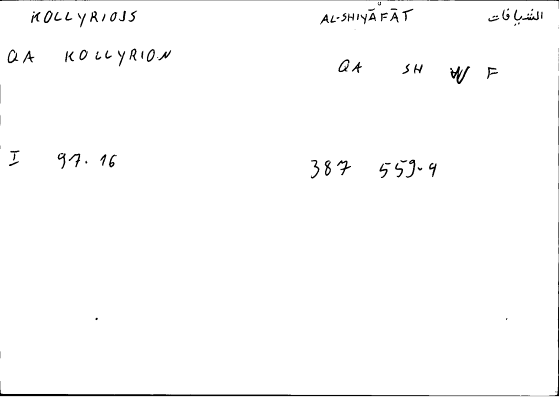 KOLLYRIOIS AL-SHIYĀFĀT الشيافات
QA KOLLYRION QA SH W F
I 97.16 387 559.9